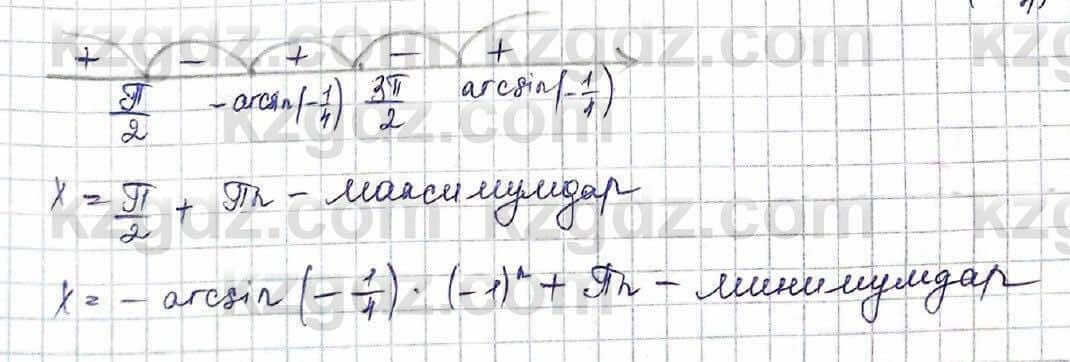 + - + - +
π/2 -arcsin(-1/4) 3π/2 arcsin(-1/4)
x = π/2 + πn - максимумдар
x = -arcsin(-1/4)·(-1)ⁿ + πn - минимумдар
kzgdz.com